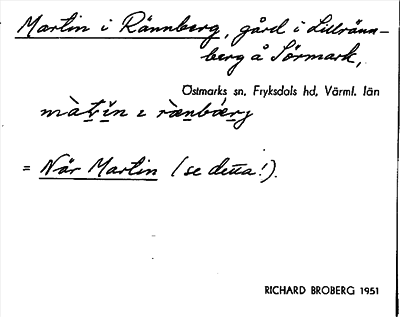 Martin i Rännberg, gård i Lillränn-
berg å Sörmark,
Östmarks sn. Fryksdals hd, Värml. län
= Når Martin (se detta!).
RICHARD BROBERG 1951